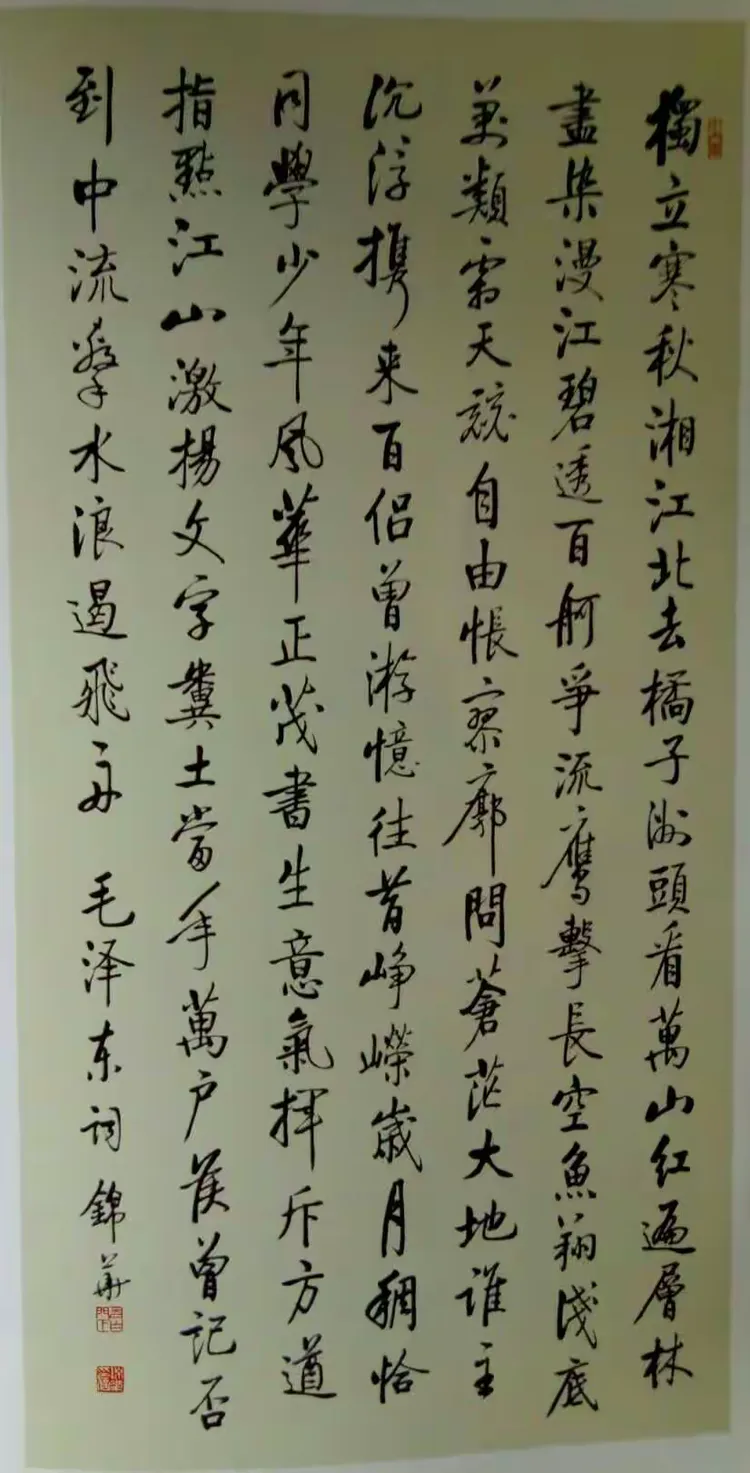 獨立寒秋湘江北去橘子洲頭看萬山紅遍層林
盡染漫江碧透百舸爭流鷹擊長空魚翔淺底
萬類霜天競自由悵寥廓問蒼茫大地誰主
沉浮攜來百侶曾游憶往昔崢嶸歲月稠恰
同學少年風華正茂書生意氣揮斥方遒
指點江山激揚文字糞土當年萬户侯曾記否
到中流擊水浪遏飛舟 毛泽东词 錦華